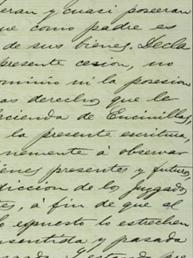 eran y cuasi poseeran
ue como padre es
de sus bienes. Decla
presente cesion, no
ominio ni la posesion
as derechos que le
cienda de Encinillas,
la presente escritura,
nemente á observar
ienes presentes y futuros,
diccion de los juzgados
tes, á fin de que al
lo espuesto lo estrechen
sentida y pasada